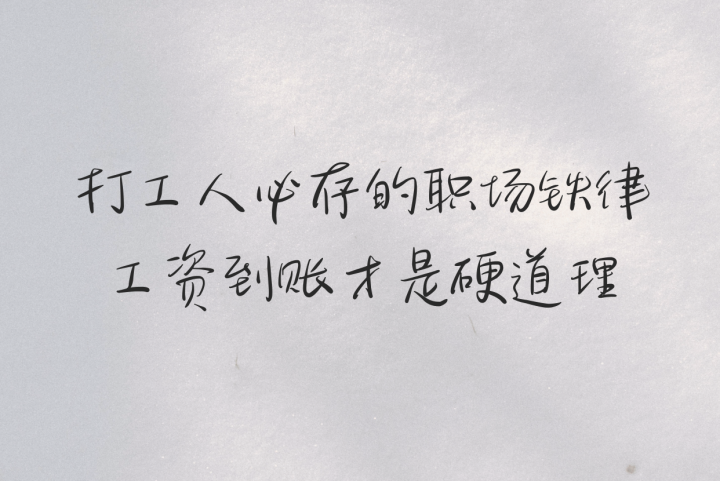 打工人必存的职场铁律
工资到账才是硬道理